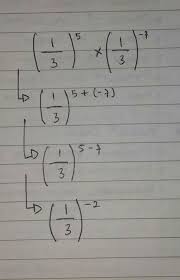 (1/3)^5 × (1/3)^-7
(1/3)^5+(-7)
(1/3)^5-7
(1/3)^-2